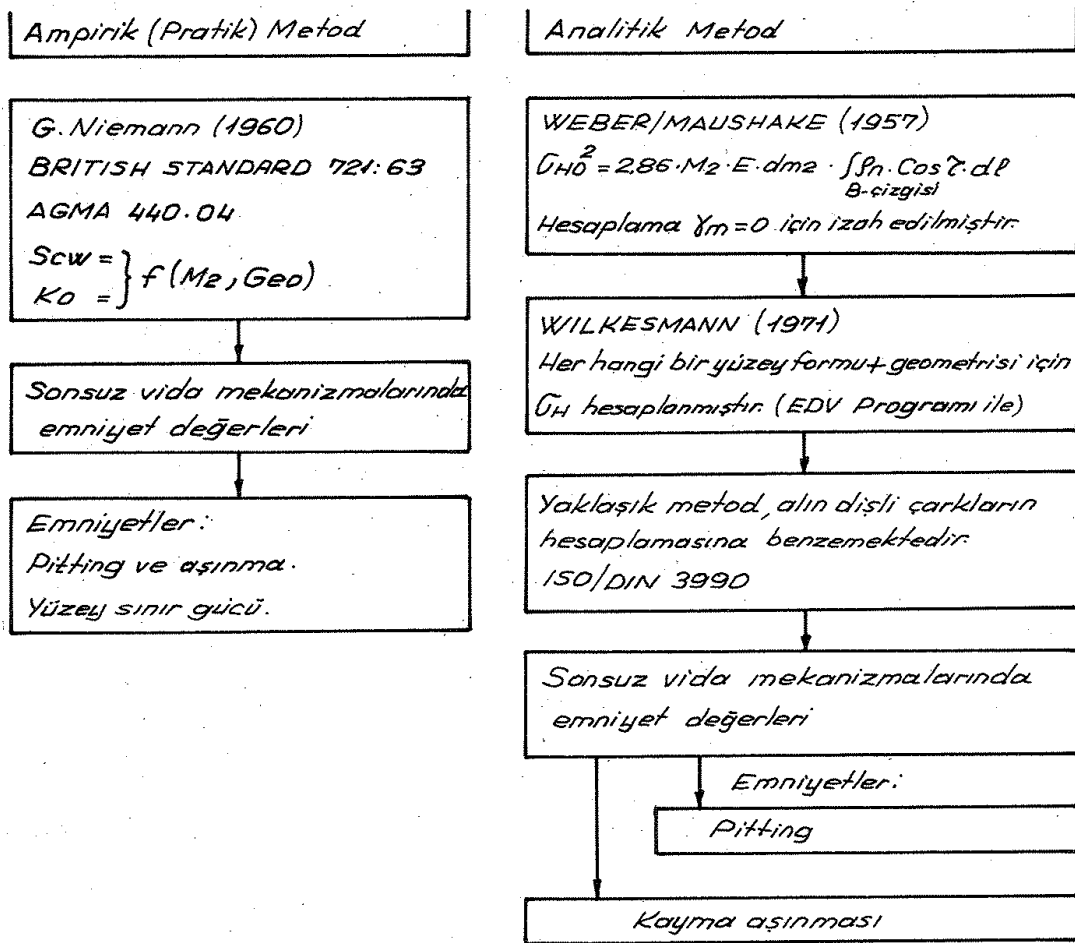 Ampirik (Pratik) Metod
G. Niemann (1960)
BRITISH STANDARD 721:63
AGMA 440.04
Scw =
Ko =
} f (M2, Geo)
Sonsuz vida mekanizmalarında
emniyet değerleri
Emniyetler:
Pitting ve aşınma.
Yüzey sınır gücü.
Analitik Metod
WEBER/MAUSHAKE (1957)
σHO² = 2,86·M2·E·dm2 · ∫ρn·Cos τ·dℓ
B-çizgisi
Hesaplama γm=0 için izah edilmiştir.
WILKESMANN (1971)
Her hangi bir yüzey formu+geometrisi için
σH hesaplanmıştır. (EDV Programı ile)
Yaklaşık metod, alın dişli çarkların
hesaplamasına benzemektedir.
ISO/DIN 3990
Sonsuz vida mekanizmalarında
emniyet değerleri
Emniyetler:
Pitting
Kayma aşınması